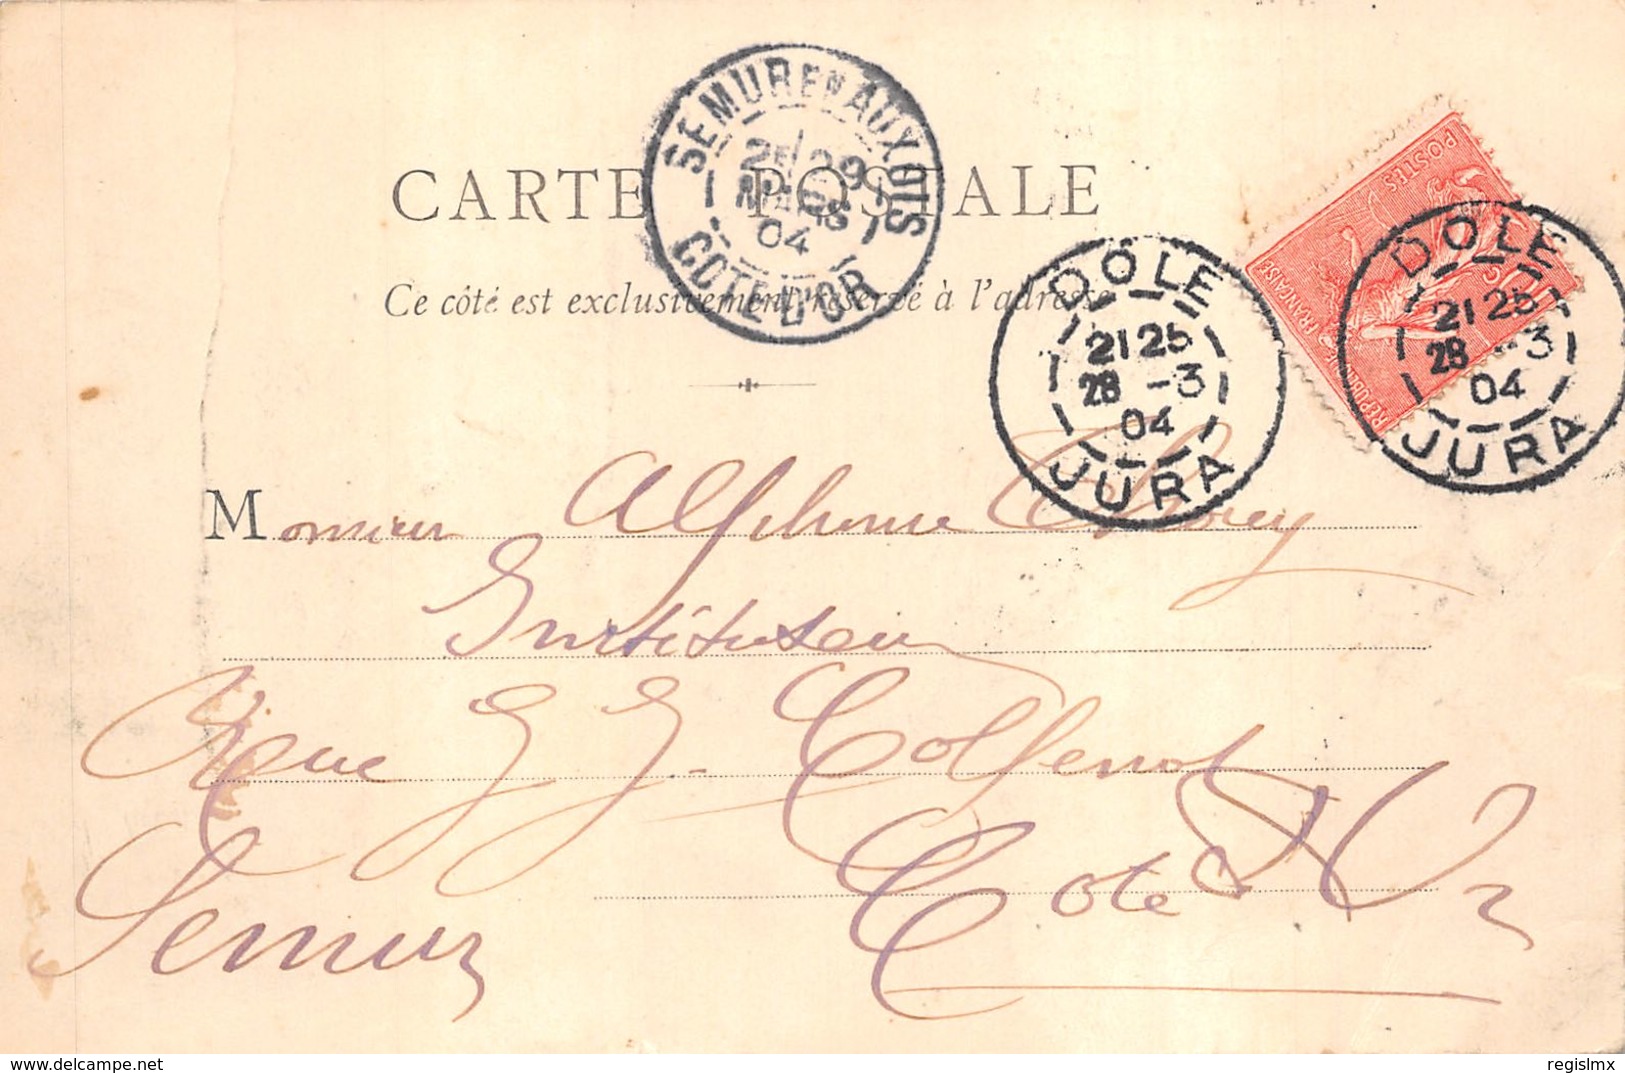 SEMUR EN AUXOIS
29
MARS
04
COTE D'OR
CARTE POSTALE
Ce côté est exclusivement réservé à l'adresse
POSTES
REPUBLIQUE FRANÇAISE
DOLE
21 25
28 -3
04
JURA
DOLE
21 25
28 -3
04
JURA
Monsieur Alphonse Thorey
Instituteur
Rue J. J. Collenot
Semur Cote d'Or
delcampe.net
regislmx